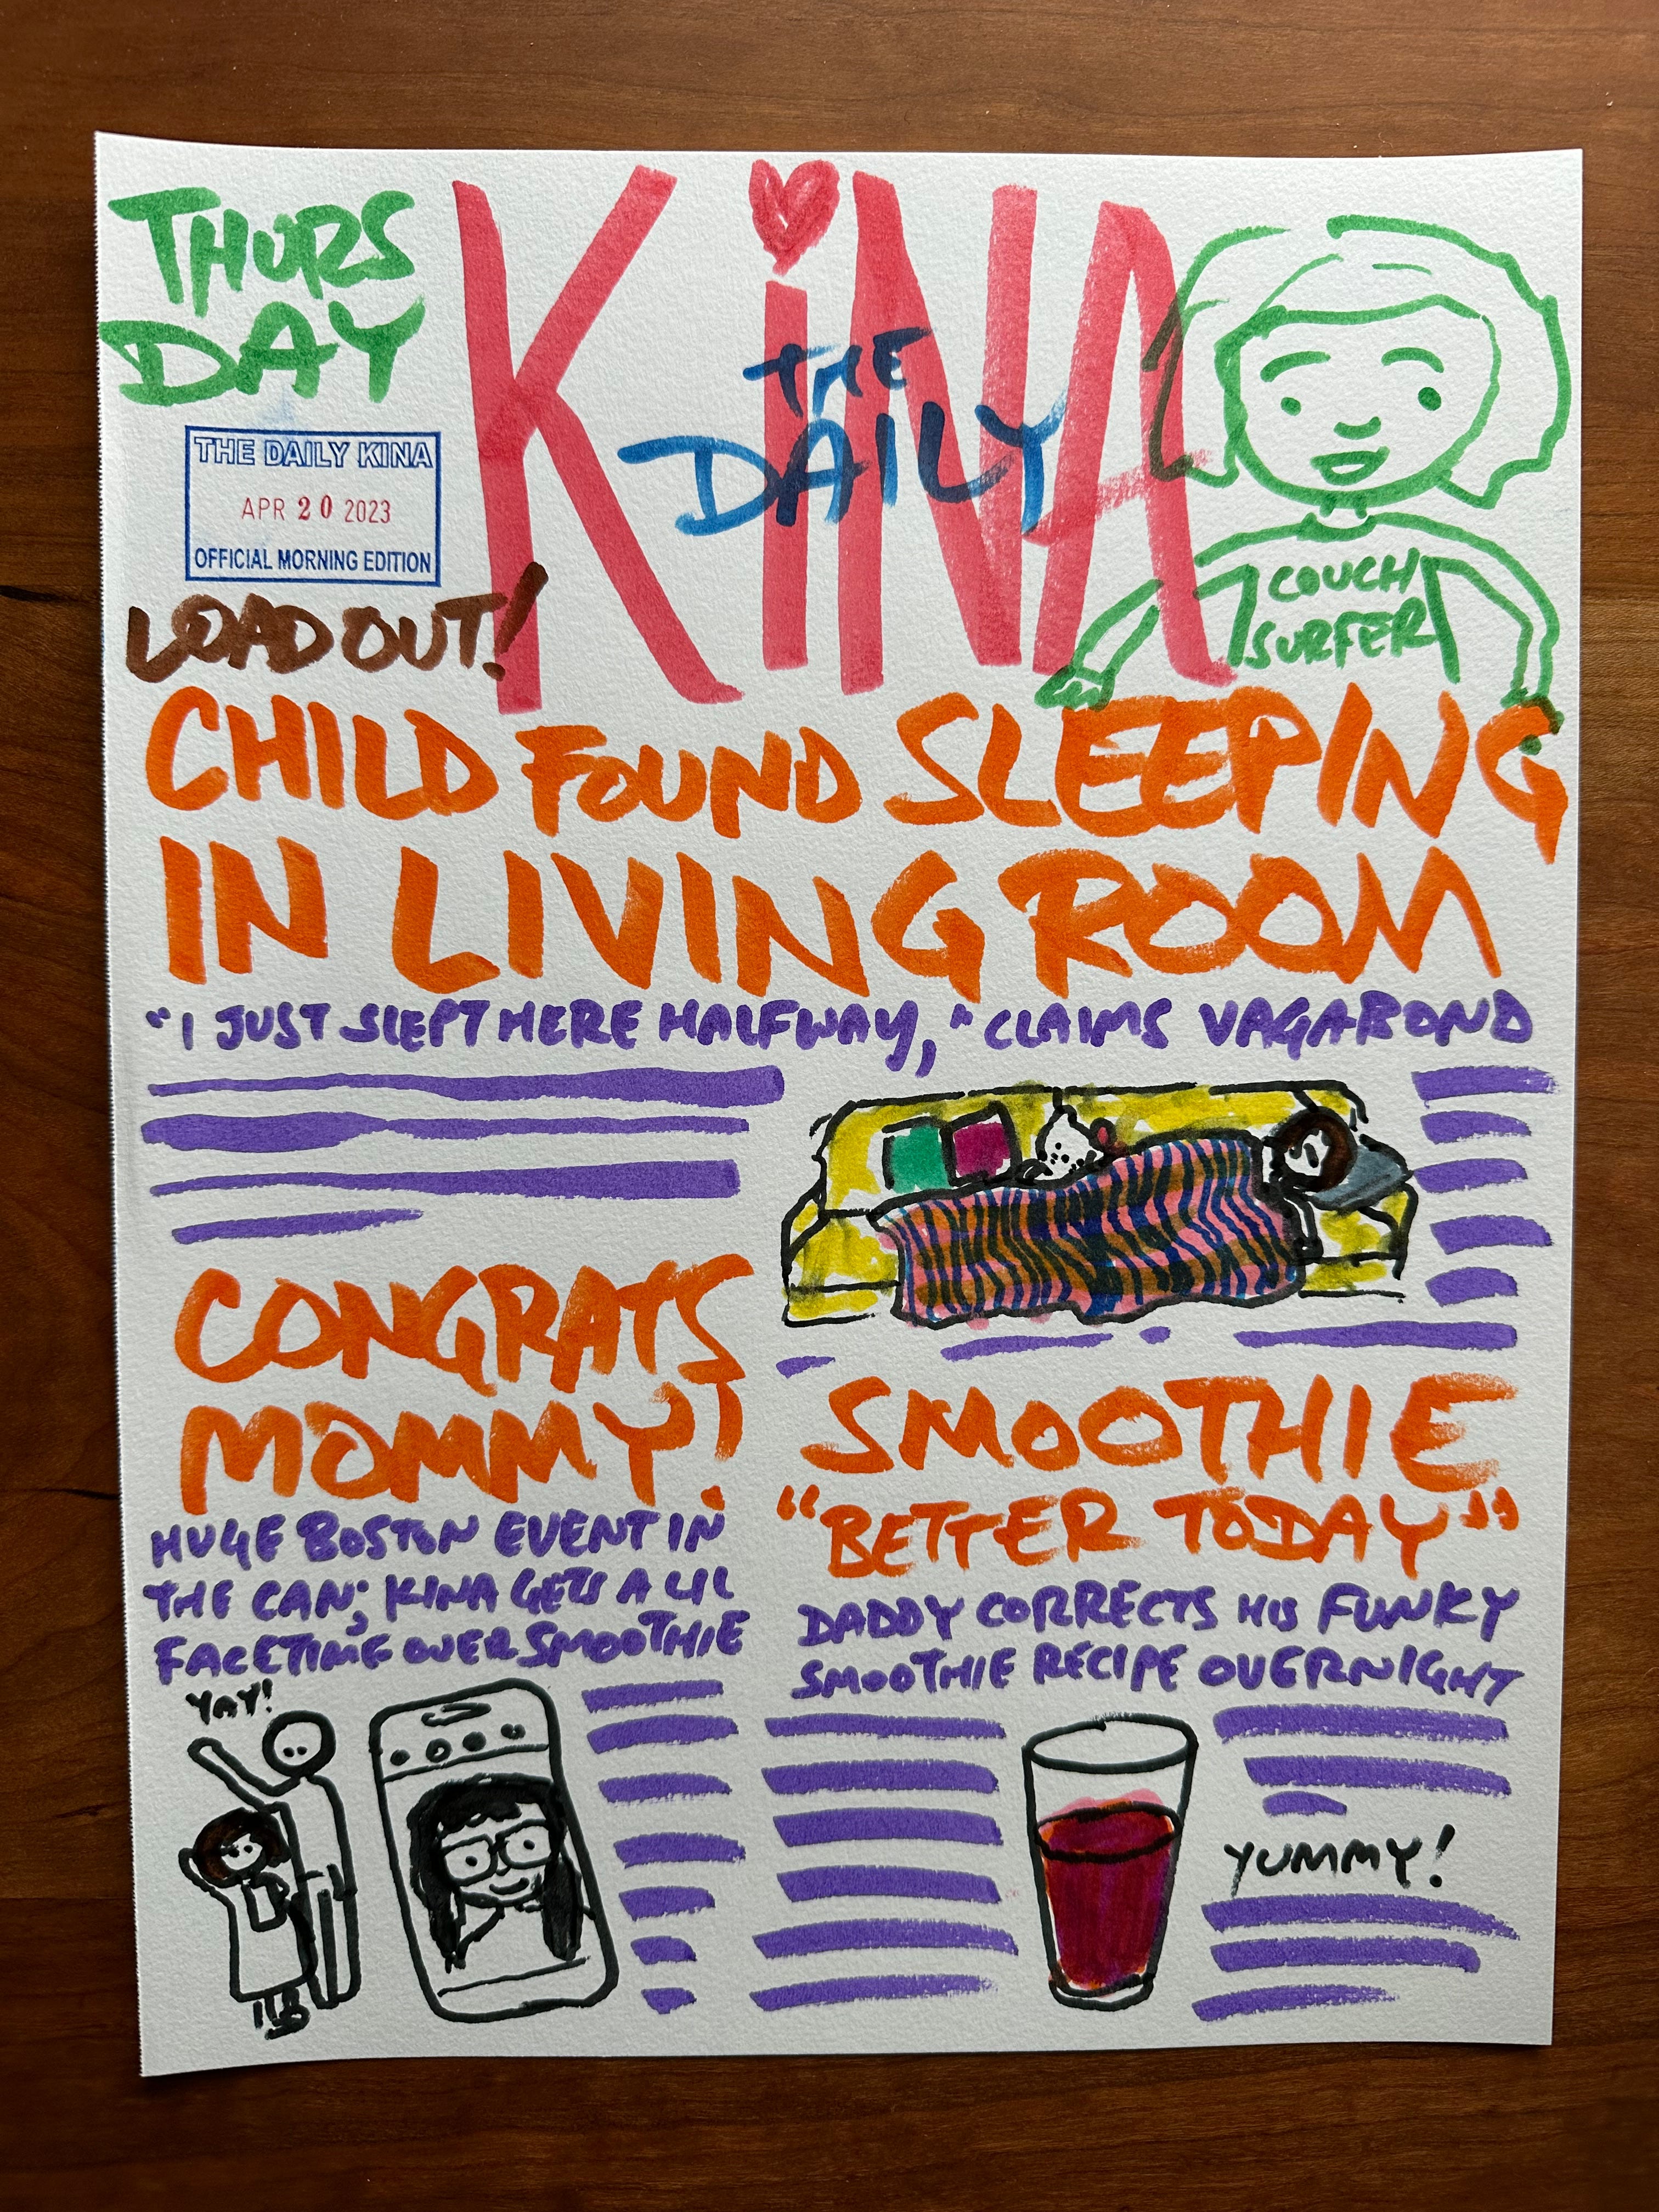 THURS
DAY
KINA
THE
DAILY
THE DAILY KINA
APR 20 2023
OFFICIAL MORNING EDITION
COUCH
SURFER
LOAD OUT!
CHILD FOUND SLEEPING
IN LIVING ROOM
"I JUST SLEPT HERE HALFWAY," CLAIMS VAGABOND
CONGRATS
MOMMY!
HUGE BOSTON EVENT IN
THE CAN; KINA GETS A LIL
FACETIME OVER SMOOTHIE
YAY!
SMOOTHIE
"BETTER TODAY"
DADDY CORRECTS HIS FUNKY
SMOOTHIE RECIPE OVERNIGHT
YUMMY!